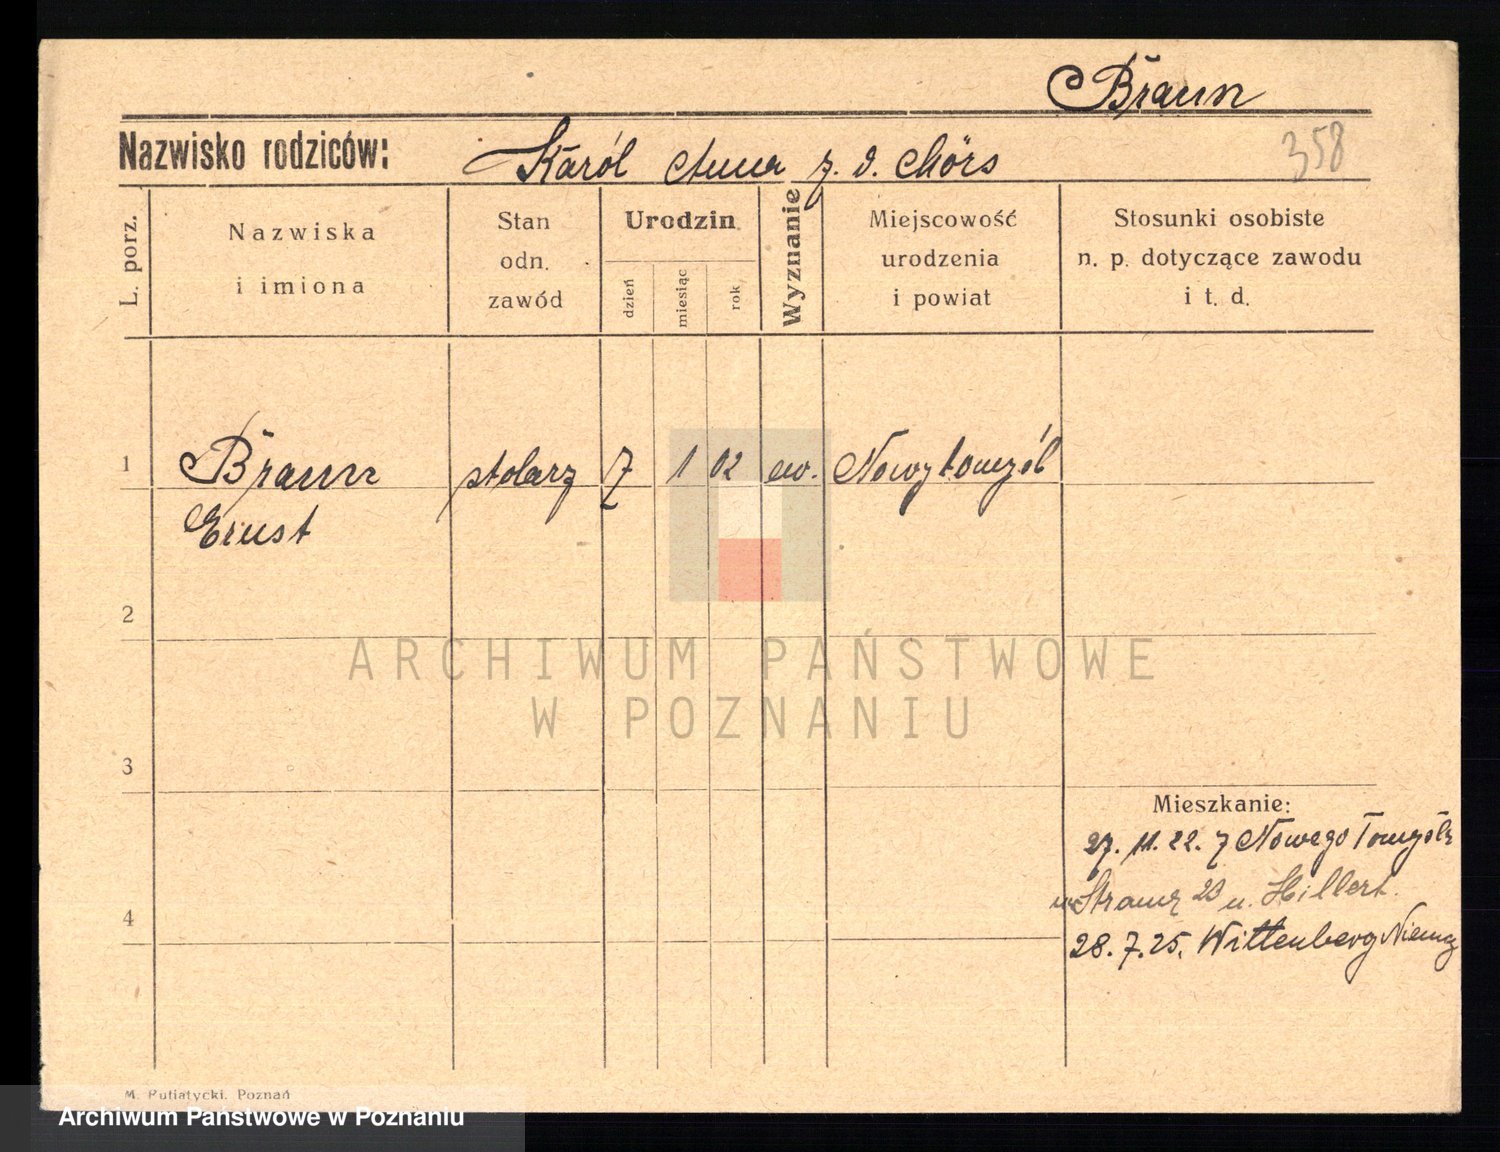 Braun
Nazwisko rodziców: Karól Anna z. d. Mörs
358
L. porz.
Nazwiska
i imiona
Stan
odn.
zawód
Urodzin
dzień
miesiąc
rok
Wyznanie
Miejscowość
urodzenia
i powiat
Stosunki osobiste
n. p. dotyczące zawodu
i t. d.
1 Braun stolarz 7 1 02 ew. Nowytomyśl
Ernst
2
ARCHIWUM PAŃSTWOWE
W POZNANIU
3
Mieszkanie:
27. 11. 22. z Nowego Tomyśla
23 u. Hillert.
4
28. 7. 25. Wittenberg Niemcy
M. Putiatycki, Poznań
Archiwum Państwowe w Poznaniu